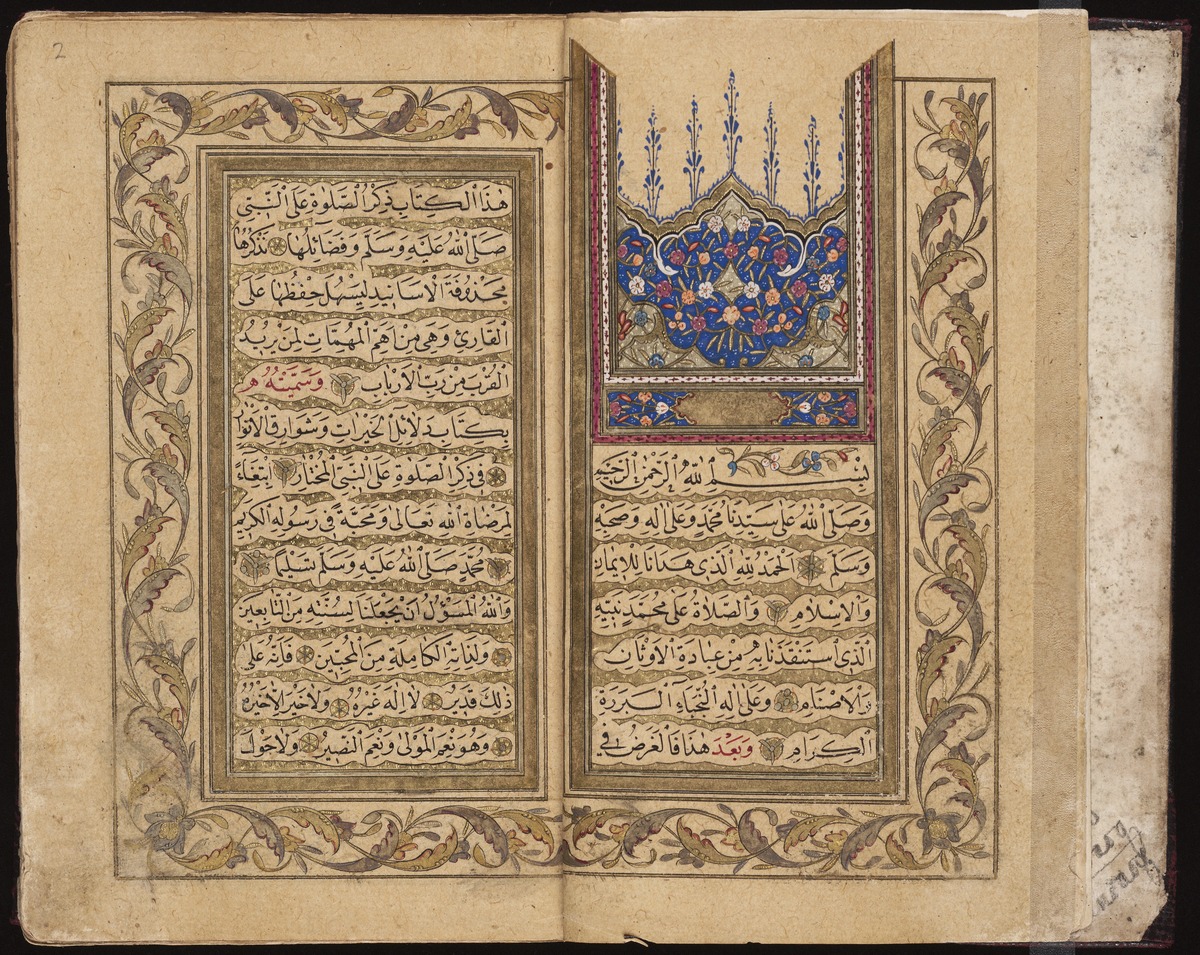 بِسْمِ اللهِ الرَّحْمٰنِ الرَّحِيْمِ
وَصَلَّى اللهُ عَلٰى سَيِّدِنَا مُحَمَّدٍ وَعَلٰى اٰلِهِ وَصَحْبِهِ
وَسَلَّمَ الْحَمْدُ لِلّٰهِ الَّذِي هَدَانَا لِلْاِيْمَانِ
وَالْاِسْلَامِ وَالصَّلَاةُ عَلٰى مُحَمَّدٍ نَبِيِّهِ
الَّذِي اسْتَنْقَذَنَا بِهِ مِنْ عِبَادَةِ الْاَوْثَانِ
وَالْاَصْنَامِ وَعَلٰى اٰلِهِ النُّجَبَاءِ الْبَرَرَةِ
الْكِرَامِ وَبَعْدَ هٰذَا فَالْغَرَضُ فِي
هٰذَا الْكِتَابِ ذِكْرُ الصَّلٰوةِ عَلَى النَّبِيِّ
صَلَّى اللهُ عَلَيْهِ وَسَلَّمَ وَفَضَائِلِهَا نَذْكُرُهَا
مَحْذُوفَةَ الْاَسَانِيدِ لِيَسْهُلَ حِفْظُهَا عَلَى
الْقَارِئِ وَهِيَ مِنْ اَهَمِّ الْمُهِمَّاتِ لِمَنْ يُرِيدُ
الْقُرْبَ مِنْ رَبِّ الْاَرْبَابِ وَسَمَّيْتُهُ
بِكِتَابِ دَلَائِلِ الْخَيْرَاتِ وَشَوَارِقِ الْاَنْوَارِ
فِي ذِكْرِ الصَّلٰوةِ عَلَى النَّبِيِّ الْمُخْتَارِ ابْتِغَاءً
لِمَرْضَاةِ اللهِ تَعَالٰى وَمَحَبَّةً فِي رَسُولِهِ الْكَرِيمِ
مُحَمَّدٍ صَلَّى اللهُ عَلَيْهِ وَسَلَّمَ تَسْلِيمًا
وَاللهُ الْمَسْؤُلُ اَنْ يَجْعَلَنَا لِسُنَّتِهِ مِنَ التَّابِعِينَ
وَلِذَاتِهِ الْكَامِلَةِ مِنَ الْمُحِبِّينَ فَاِنَّهُ عَلٰى
ذٰلِكَ قَدِيرٌ لَا اِلٰهَ غَيْرُهُ وَلَا خَيْرَ اِلَّا خَيْرُهُ
وَهُوَ نِعْمَ الْمَوْلٰى وَنِعْمَ النَّصِيرُ وَلَا حَوْلَ
2